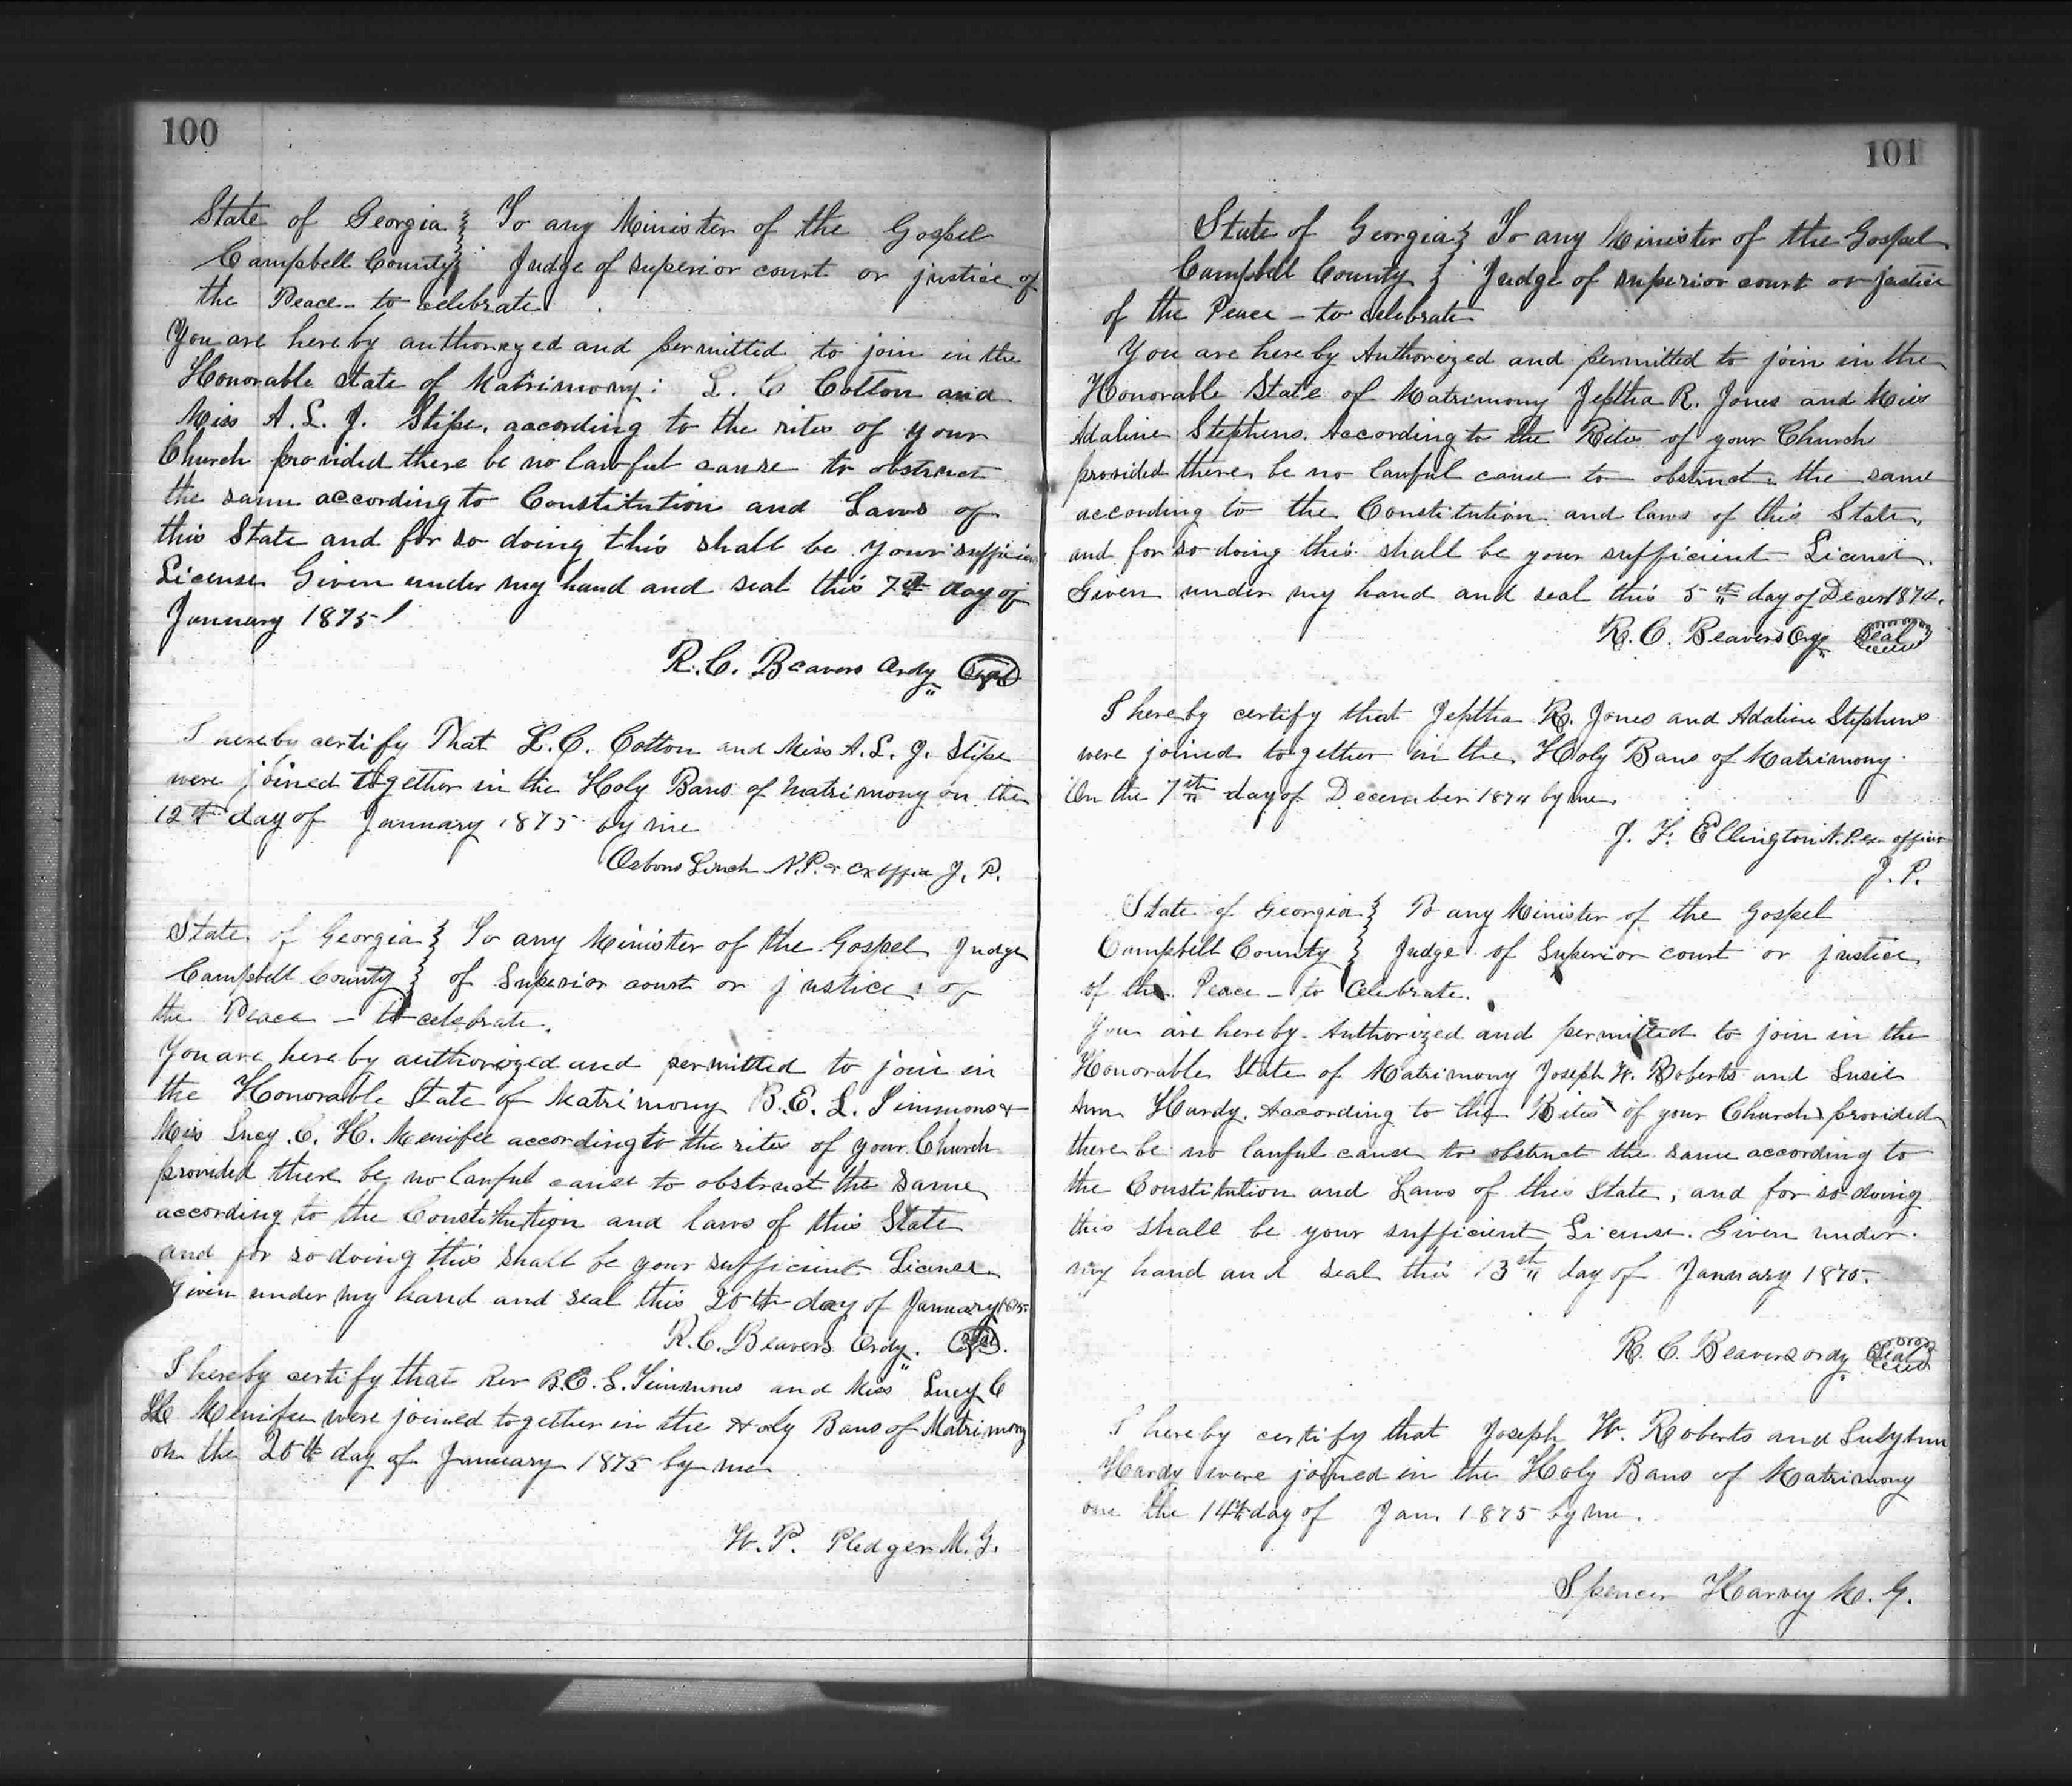 100
State of Georgia } To any Minister of the Gospel
Campbell County } Judge of superior court or justice of
the Peace - to celebrate
You are hereby authorized and permitted to join in the
Honorable state of Matrimony: L. C Cotton and
Miss A. L. J. Stipe. according to the rites of your
Church provided there be no lawful cause to obstruct
the same according to Constitution and Laws of
this State and for so doing this shall be your sufficien
License Given under my hand and seal this 7th day of
January 1875
R. C. Beavers Ordy Seal
I hereby certify That L. C. Cotton and Miss A. L. J. Stipe
were joined together in the Holy Bans of matrimony on the
12th day of January 1875 by me
Osborn Linch N.P. & Ex offic J. P.
State of Georgia } To any Minister of the Gospel Judge
Campbell County } of Superior court or justice of
the Peace - to celebrate.
You are here by authorized and permitted to join in
the Honorable State of Matrimony B. E. L. Timmons &
Miss Lucy. C. H. Menifee according to the rites of your Church
provided there be no lawful cause to obstruct the same
according to the Constitution and laws of this State
and for so doing this shall be your sufficient License
Given under my hand and seal this 20th day of January 1875
R. C. Beavers Ordy. Seal.
I hereby certify that Rev B. E. L. Timmons and Miss Lucy C
H Menifee were joined together in the Holy Bans of Matrimony
on the 20th day of January 1875 by me
W. P. Pledger M. G.
101
State of Georgia } To any Minister of the Gospel
Campbell County } Judge of superior court or justice
of the Peace - to celebrate
You are hereby Authorized and permitted to join in the
Honorable State of Matrimony Jeptha R. Jones and Miss
Adaline Stephens. According to the Rites of your Church
provided there be no lawful cause to obstruct the same
according to the Constitution and laws of this State,
and for so doing this shall be your sufficient License.
Given under my hand and seal this 5th day of Decem 1874.
R. C. Beavers Ordy Seal
I hereby certify that Jeptha R. Jones and Adaline Stephens
were joined together in the Holy Bans of Matrimony
On the 7th day of December 1874 by me
J. F. Ellington N. P. ex officio
J. P.
State of Georgia } To any Minister of the Gospel
Campbell County } Judge of Superior court or justice
of the Peace - to Celebrate.
You are hereby Authorized and permitted to join in the
Honorable State of Matrimony Joseph W. Roberts and Susie
Ann Hardy. According to the Rites of your Church provided
there be no lawful cause to obstruct the same according to
the Constitution and Laws of this State, and for so doing
this shall be your sufficient License. Given under
my hand and seal this 13th day of January 1875.
R. C. Beavers ordy Seal
I hereby certify that Joseph W. Roberts and
Hardy were joined in the Holy Bans of Matrimony
one the 14th day of Jan. 1875 by me.
Spencer Harvey M. G.